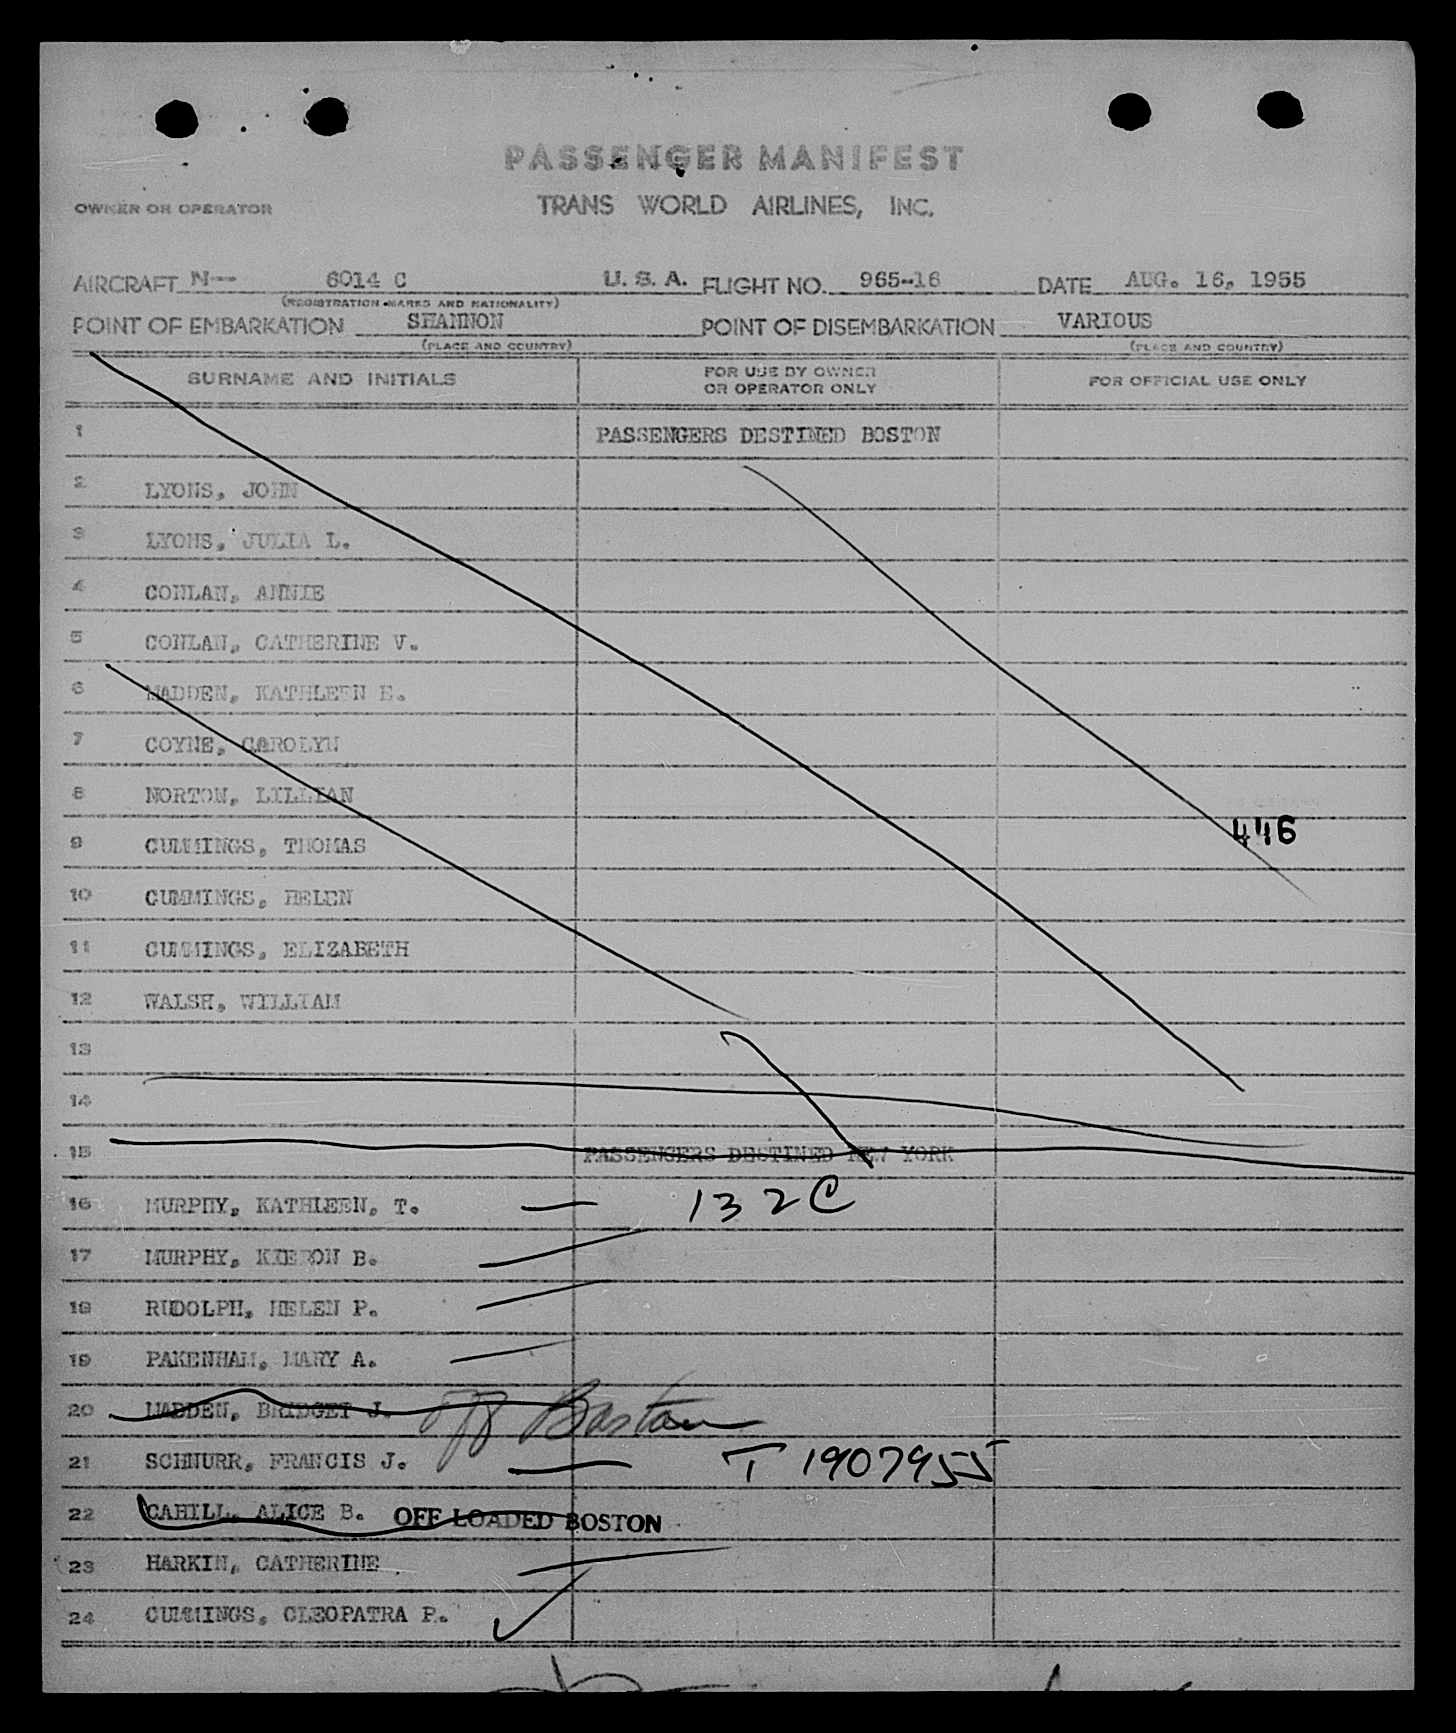 PASSENGER MANIFEST
OWNER OR OPERATOR TRANS WORLD AIRLINES, INC.
AIRCRAFT N-- 6014 C U. S. A. FLIGHT NO. 965-16 DATE AUG. 16, 1955
(REGISTRATION MARKS AND NATIONALITY)
POINT OF EMBARKATION SHANNON POINT OF DISEMBARKATION VARIOUS
(PLACE AND COUNTRY) (PLACE AND COUNTRY)
SURNAME AND INITIALS FOR USE BY OWNER OR OPERATOR ONLY FOR OFFICIAL USE ONLY
1 PASSENGERS DESTINED BOSTON
2 LYONS, JOHN
3 LYONS, JULIA L.
4 CONLAN, ANNIE
5 CONLAN, CATHERINE V.
6 MADDEN, KATHLEEN E.
7 COYNE, CAROLYN
8 NORTON, LILLIAN
446
9 CUMMINGS, THOMAS
10 CUMMINGS, HELEN
11 CUMMINGS, ELIZABETH
12 WALSH, WILLIAM
13
14
15 PASSENGERS DESTINED NEW YORK
16 MURPHY, KATHLEEN, T. 132C
17 MURPHY, KIERON B.
18 RUDOLPH, HELEN P.
19 PAKENHAM, MARY A.
20 MADDEN, BRIDGET J. off Boston
21 SCHNURR, FRANCIS J. T 1907955
22 CAHILL, ALICE B. OFF LOADED BOSTON
23 HARKIN, CATHERINE
24 CUMMINGS, CLEOPATRA P.